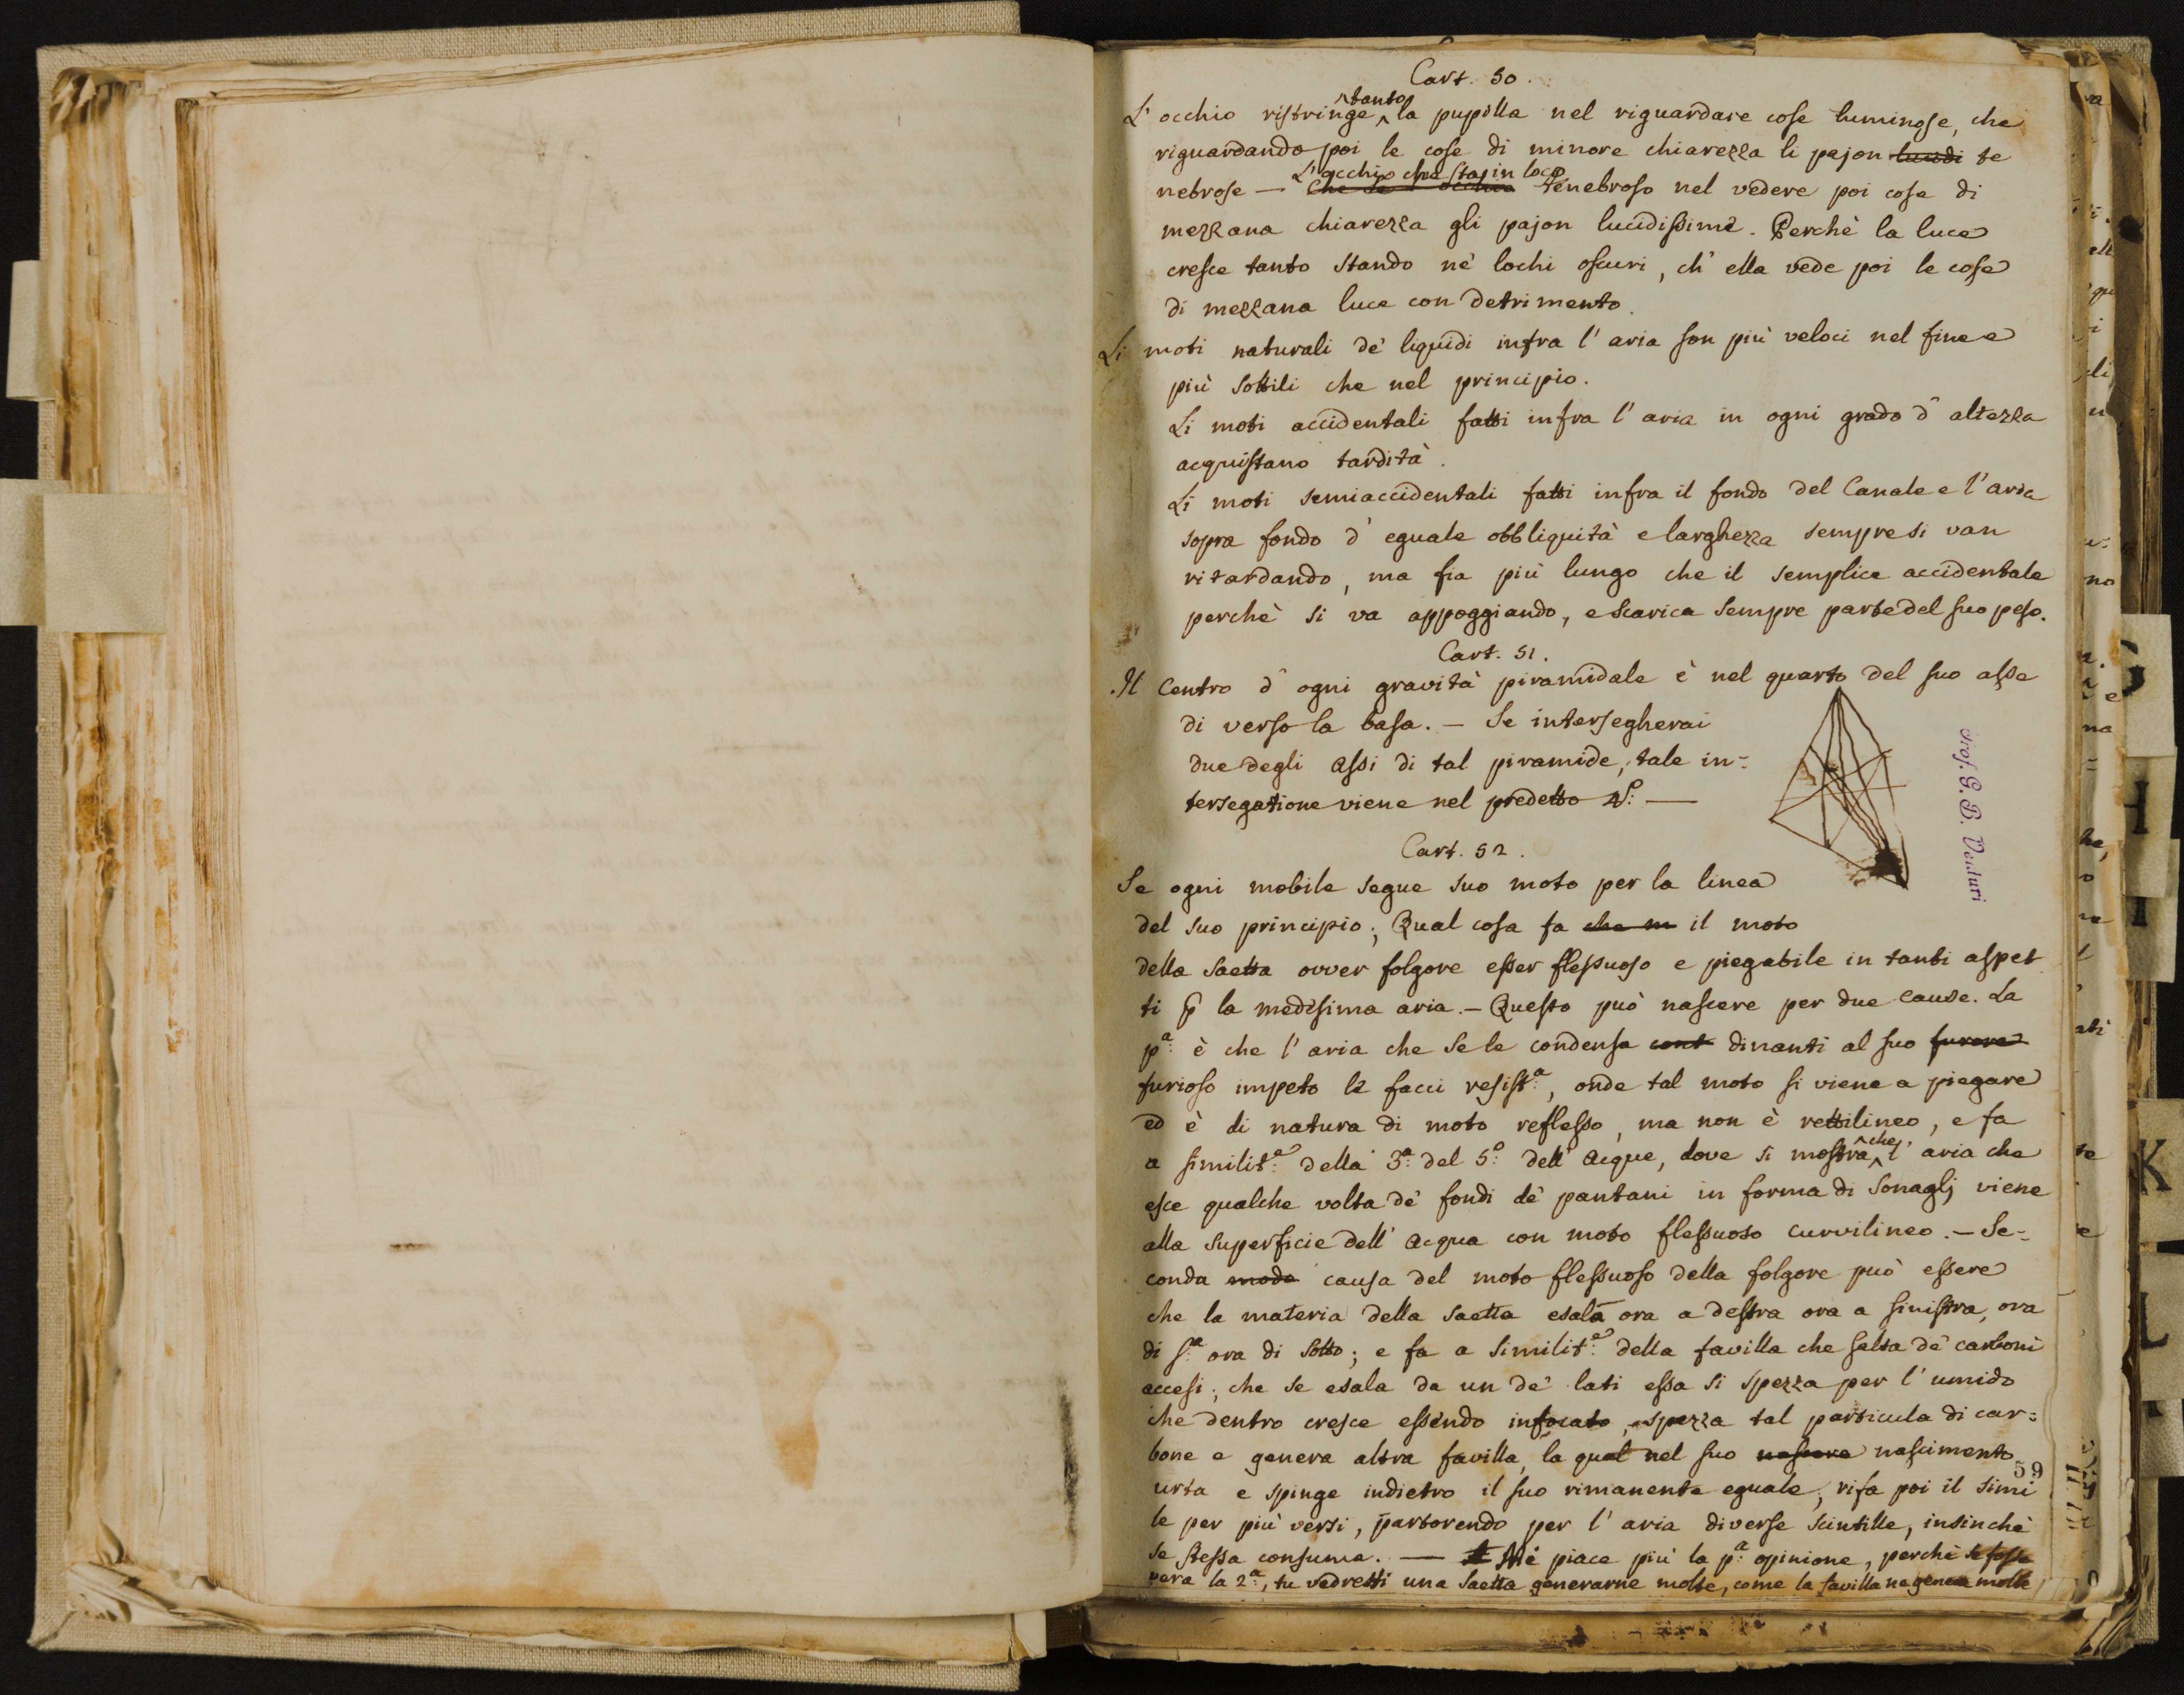 Cart. 50.
L'occhio ristringe ^tanto la pupilla nel riguardare cose luminose, che
riguardando poi le cose di minore chiarezza li pajon lucidi te
nebrose — Che se l'occhio L'occhio che sta in loco tenebroso nel vedere poi cose di
mezzana chiarezza gli pajon lucidissime. Perchè la luce
cresce tanto stando ne' lochi oscuri, ch' ella vede poi le cose
di mezzana luce con detrimento.
Li moti naturali de' liquidi infra l' aria son più veloci nel fine e
più sottili che nel principio.
Li moti accidentali fatti infra l' aria in ogni grado d' altezza
acquistano tardità.
Li moti semiaccidentali fatti infra il fondo del Canale e l'aria
sopra fondo d' eguale obbliquità e larghezza sempre si van
ritardando, ma fia più lungo che il semplice accidentale
perchè si va appoggiando, e scarica sempre parte del suo peso.
Cart. 51.
Il Centro d' ogni gravità piramidale è nel quarto del suo asse
di verso la basa. — Se intersegherai
due degli assi di tal piramide, tale in=
tersegatione viene nel predetto 4º: —
Prof. G. B. Venturi
Cart. 52.
Se ogni mobile segue suo moto per la linea
del suo principio; Qual cosa fa che m il moto
della Saetta ovver folgore esser flessuoso e piegabile in tanti aspet
ti per la medesima aria. — Questo può nascere per due cause. La
pª: è che l' aria che se le condensa cont dinanti al suo furore
furioso impeto le facci resistª:, onde tal moto si viene a piegare
ed è di natura di moto reflesso, ma non è rettilineo, e fa
a similitᵉ: della 3ª: del 5º: dell' acque, dove si mostra ^che l' aria che
esce qualche volta de' fondi de' pantani in forma di Sonaglj viene
alla superficie dell' acqua con moto flessuoso curvilineo. — Se=
conda modo causa del moto flessuoso della folgore può essere
che la materia della saetta esala ora a destra ora a sinistra, ora
di sª: ora di sotto; e fa a similitᵉ: della favilla che salta de' carboni
accesi; che se esala da un de' lati essa si spezza per l' umido
che dentro cresce essendo infocato, e spezza tal particula di car=
bone e genera altra favilla, la qual nel suo nascere nascimento
59
urta e spinge indietro il suo rimanente eguale, rifa poi il simi
le per più versi, partorendo per l' aria diverse scintille, insinchè
se stessa consuma. — A Mè piace più la pª: opinione, perchè se fosse
vera la 2ª:, tu vedretti una Saetta generarne molte, come la favilla ne genera molte